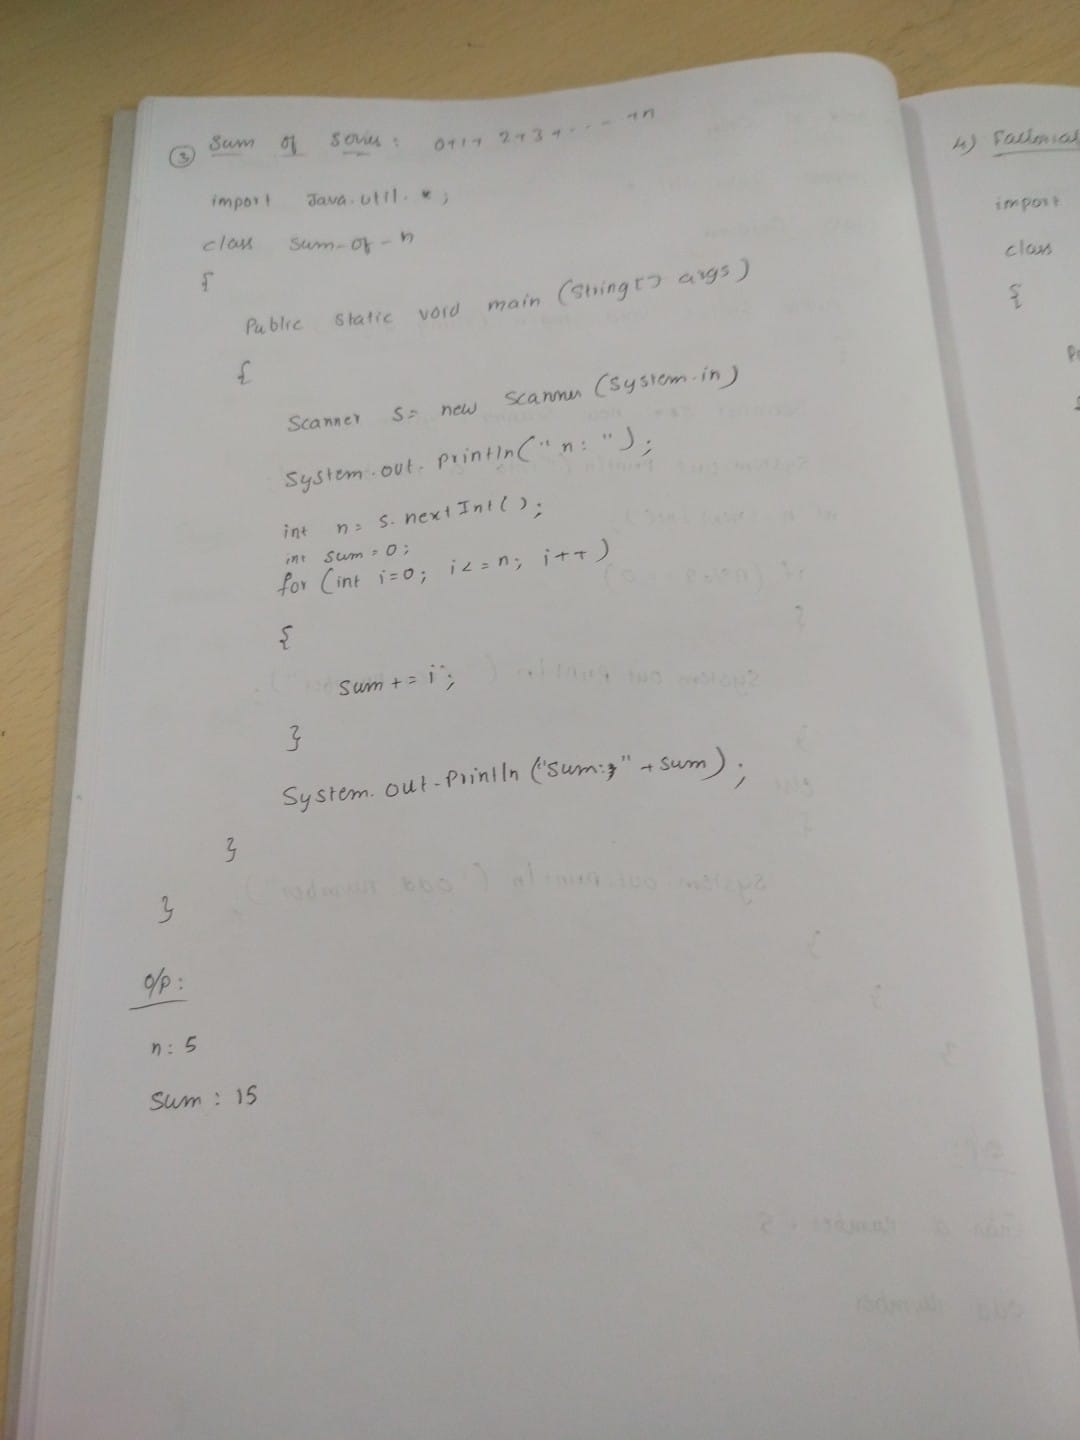 ③ Sum of Series: 0+1+2+3+...-+n
import Java.util.*;
class sum-of-n
{
Public static void main (String[] args)
{
Scanner s= new Scanner (System.in)
System.out.println("n:");
int n= s.nextInt();
int sum=0;
for (int i=0; i<=n; i++)
{
sum+=i;
}
System.out.Println("Sum:" +sum);
}
}
o/p:
n: 5
Sum: 15
4) Factorial
import
class
{